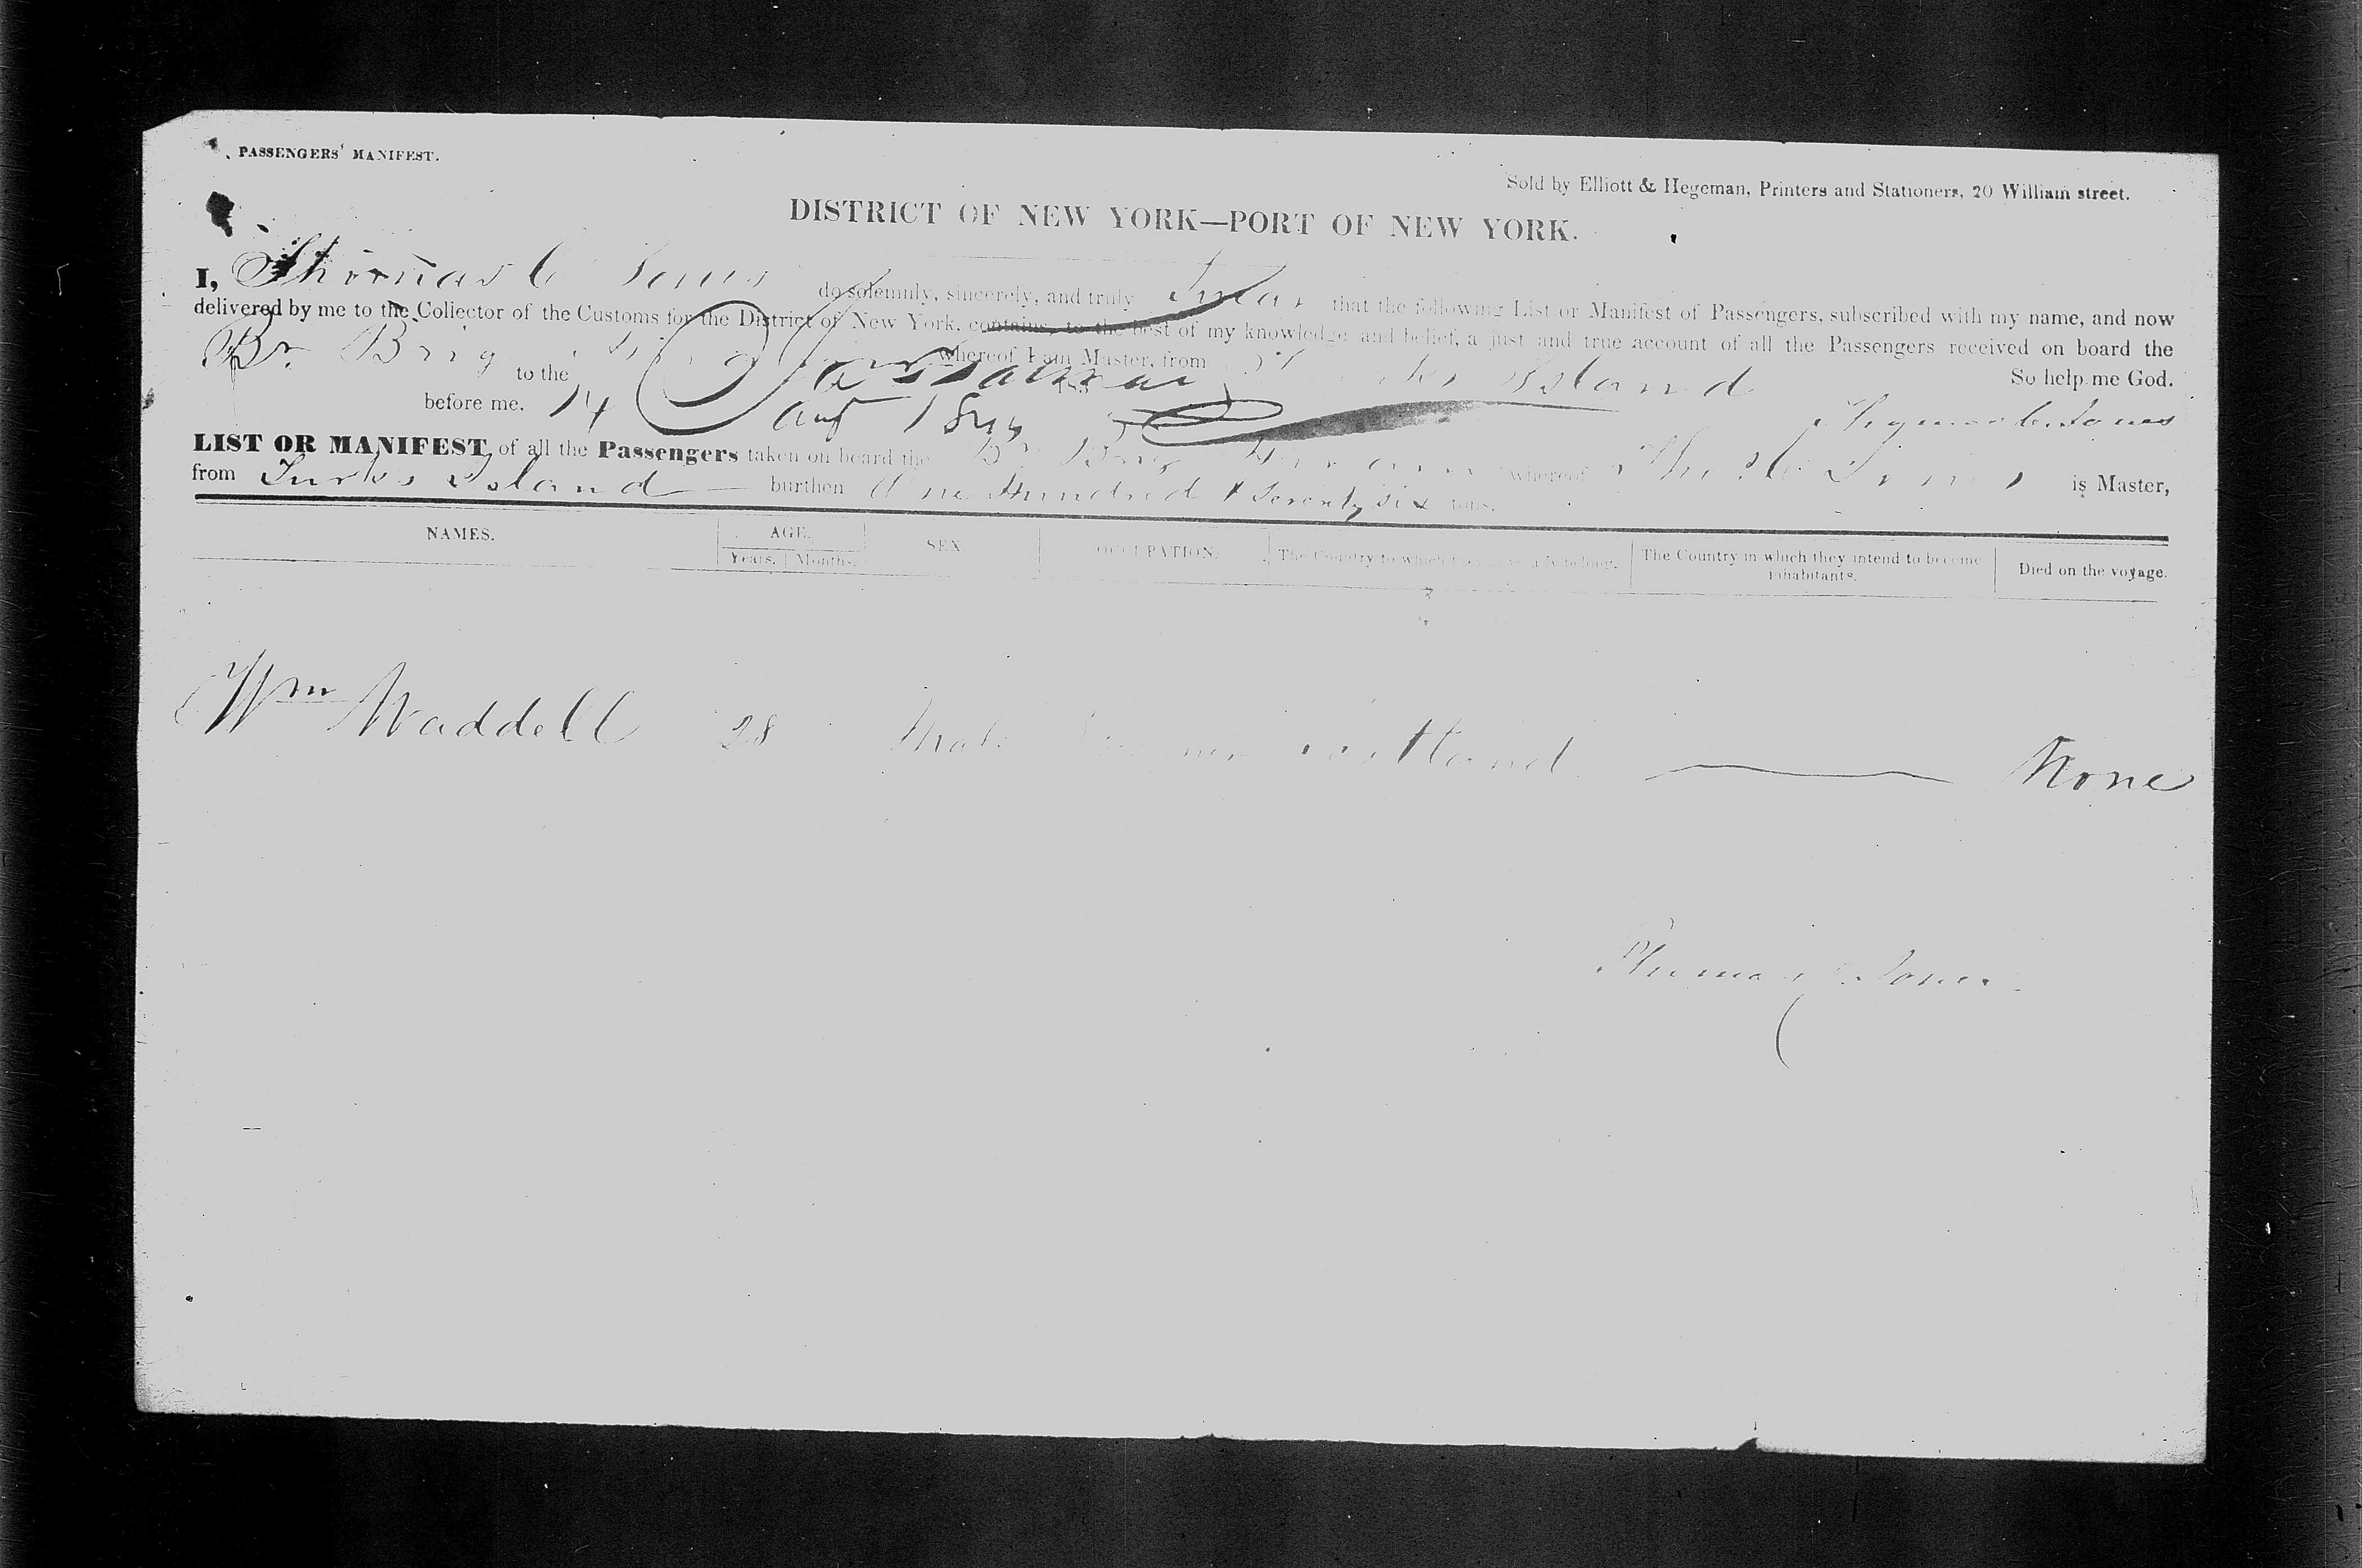 PASSENGERS' MANIFEST.
Sold by Elliott & Hegeman, Printers and Stationers, 20 William street.
DISTRICT OF NEW YORK—PORT OF NEW YORK.
I, Thomas C Jones do solemnly, sincerely, and truly Swear that the following List or Manifest of Passengers, subscribed with my name, and now
delivered by me to the Collector of the Customs for the District of New York, contains, to the best of my knowledge and belief, a just and true account of all the Passengers received on board the
Br. Brig whereof I am Master, from Island So help me God.
to the
before me, 14 Aug Thomas C. Jones
LIST OR MANIFEST, of all the Passengers taken on board the Br Brig whereof Thos C Jones is Master,
from Turks Island burthen One Hundred & Seventy six tons.
NAMES. AGE. SEX OCCUPATION. The Country to which they severally belong. The Country in which they intend to become inhabitants. Died on the voyage.
Years. Months.
Wm Waddell 28 Male Scotland — None
Thomas C Jones